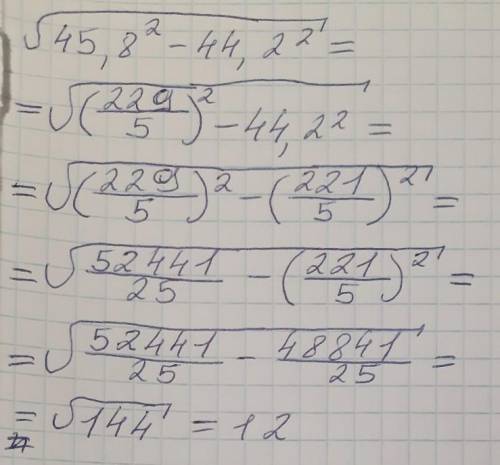 √(45,8² - 44,2²) =
= √((229/5)² - 44,2²) =
= √((229/5)² - (221/5)²) =
= √(52441/25 - (221/5)²) =
= √(52441/25 - 48841/25) =
= √144 = 12